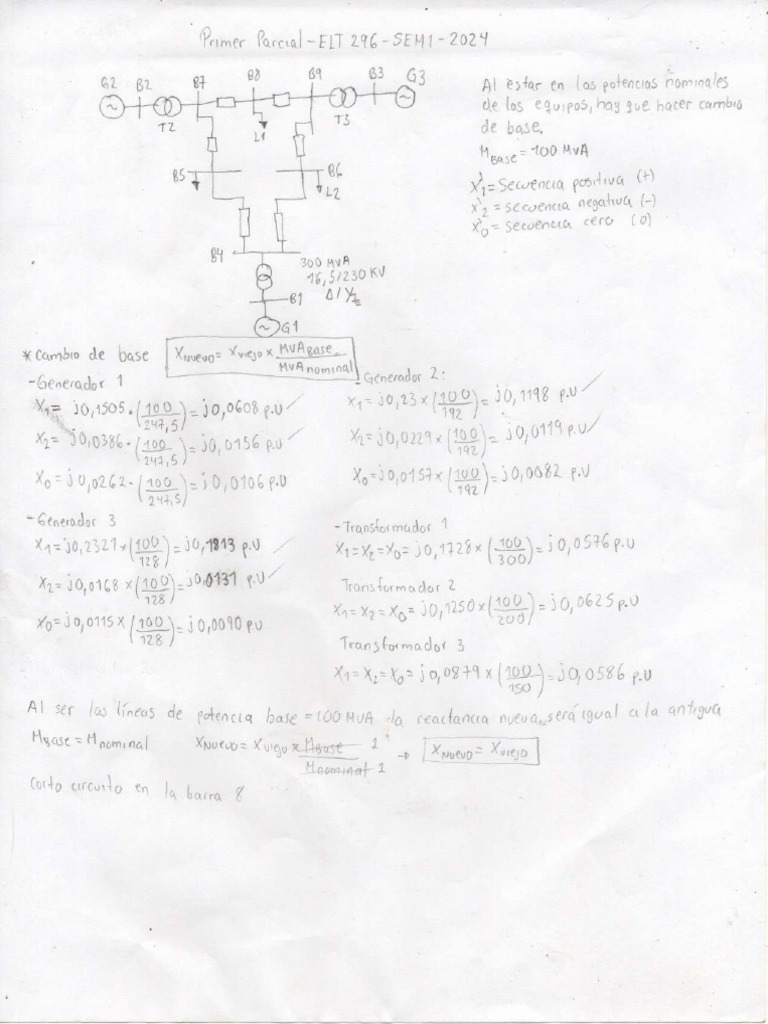 Primer Parcial - ELT 296 - SEM1 - 2024
G2 B2 B7 B8 B9 B3 G3
T2 L1 T3
B5 B6
L2
B4
300 MVA
16,5/230 KV
Δ/Y
B1
G1
Al estar en las potencias nominales
de los equipos, hay que hacer cambio
de base.
MBase = 100 MVA
X1 = Secuencia positiva (+)
X2 = secuencia negativa (-)
X0 = secuencia cero (0)
* Cambio de base XNuevo = Xviejo × MVABase / MVAnominal
- Generador 1
X1 = j0,1505 · (100/247,5) = j0,0608 p.u ✓
X2 = j0,0386 · (100/247,5) = j0,0156 p.u ✓
X0 = j0,0262 · (100/247,5) = j0,0106 p.u
- Generador 2:
X1 = j0,23 × (100/192) = j0,1198 p.u ✓
X2 = j0,0229 × (100/192) = j0,0119 p.u ✓
X0 = j0,0157 × (100/192) = j0,0082 p.u
- Generador 3
X1 = j0,2321 × (100/128) = j0,1813 p.u ✓
X2 = j0,0168 × (100/128) = j0,0131 p.u ✓
X0 = j0,0115 × (100/128) = j0,0090 p.u
- Transformador 1
X1 = X2 = X0 = j0,1728 × (100/300) = j0,0576 p.u
Transformador 2
X1 = X2 = X0 = j0,1250 × (100/200) = j0,0625 p.u
Transformador 3
X1 = X2 = X0 = j0,0879 × (100/150) = j0,0586 p.u
Al ser las líneas de potencia base = 100 MVA la reactancia nueva será igual a la antigua
MBase = Mnominal XNuevo = Xviejo × MBase 1 / Mnominal 1 → XNuevo = Xviejo
Corto circuito en la barra 8